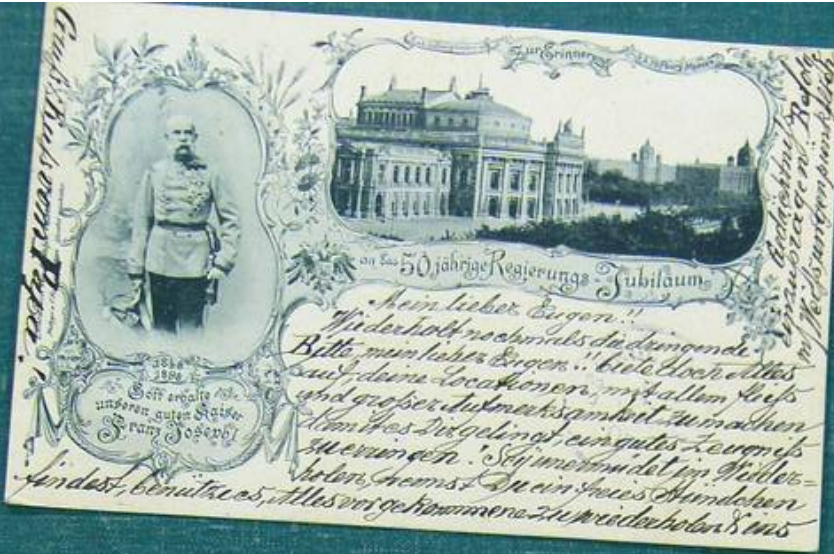 Zur Erinnerung
an das 50 jährige Regierungs-Jubiläum
1848
1898
Gott erhalte
unseren guten Kaiser
Franz Joseph!
Mein lieber Eugen!!
Wiederholt nochmals die dringende
Bitte, mein lieber Eugen!! biete doch Alles
auf, deine Locationen, mit allem Fleiß
und großer Aufmerksamkeit zu machen
damit es Dir gelingt, ein gutes Zeugniß
zu erringen! Sei unermüdet im Wieder=
holen, nemst Du ein freies Stündchen
findest, benütze es, Alles vorgekommene zu wiederholen &
Gedächtniß
einzuprägen!
Gruß & Kuß vom Papa!